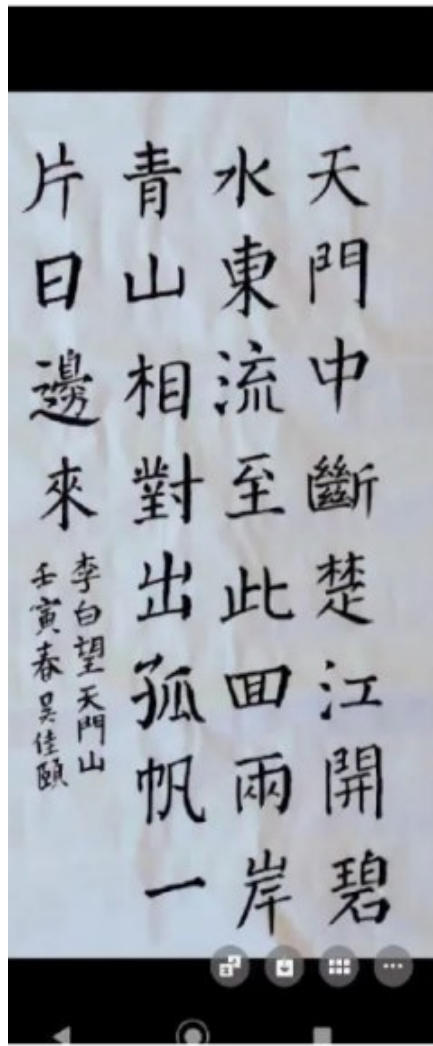 天門中斷楚江開碧
水東流至此回兩岸
青山相對出孤帆一
片日邊來
李白望天門山
壬寅春吴佳頤